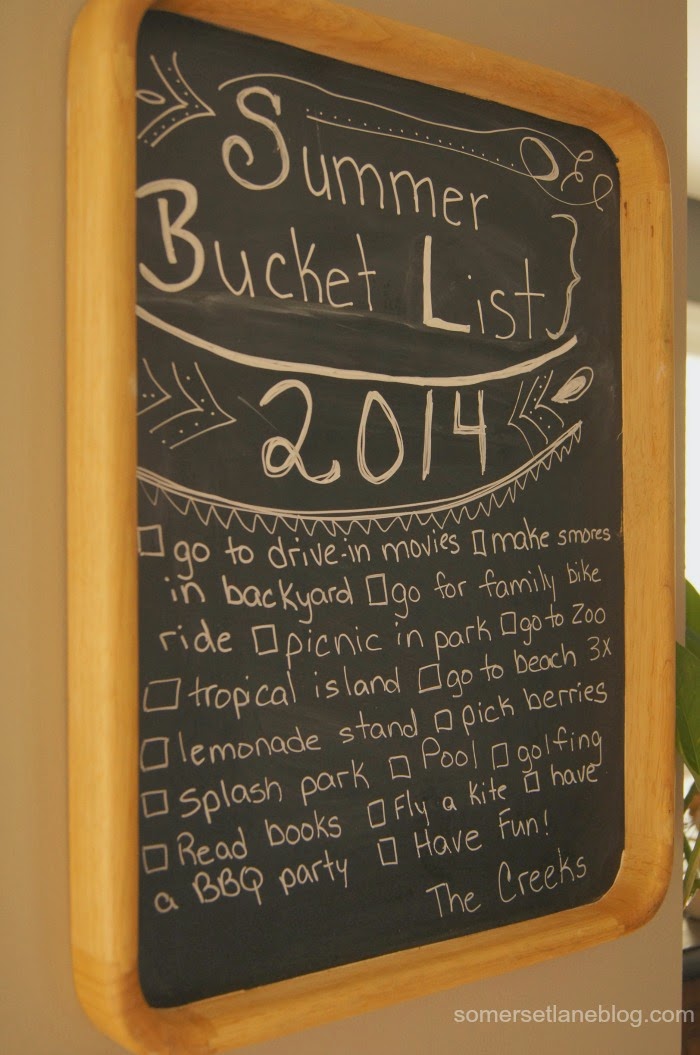 Summer
Bucket List
2014
☐ go to drive-in movies ☐ make smores
in backyard ☐ go for family bike
ride ☐ picnic in park ☐ go to Zoo
☐ tropical island ☐ go to beach 3x
☐ lemonade stand ☐ pick berries
☐ Splash park ☐ Pool ☐ golfing
☐ Read books ☐ Fly a kite ☐ have
a BBQ party ☐ Have Fun!
The Creeks
somersetlaneblog.com